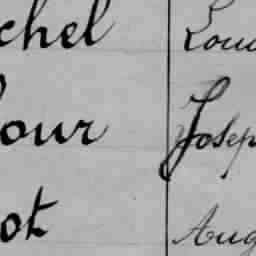 chel Loui
four Josep
ot Aug